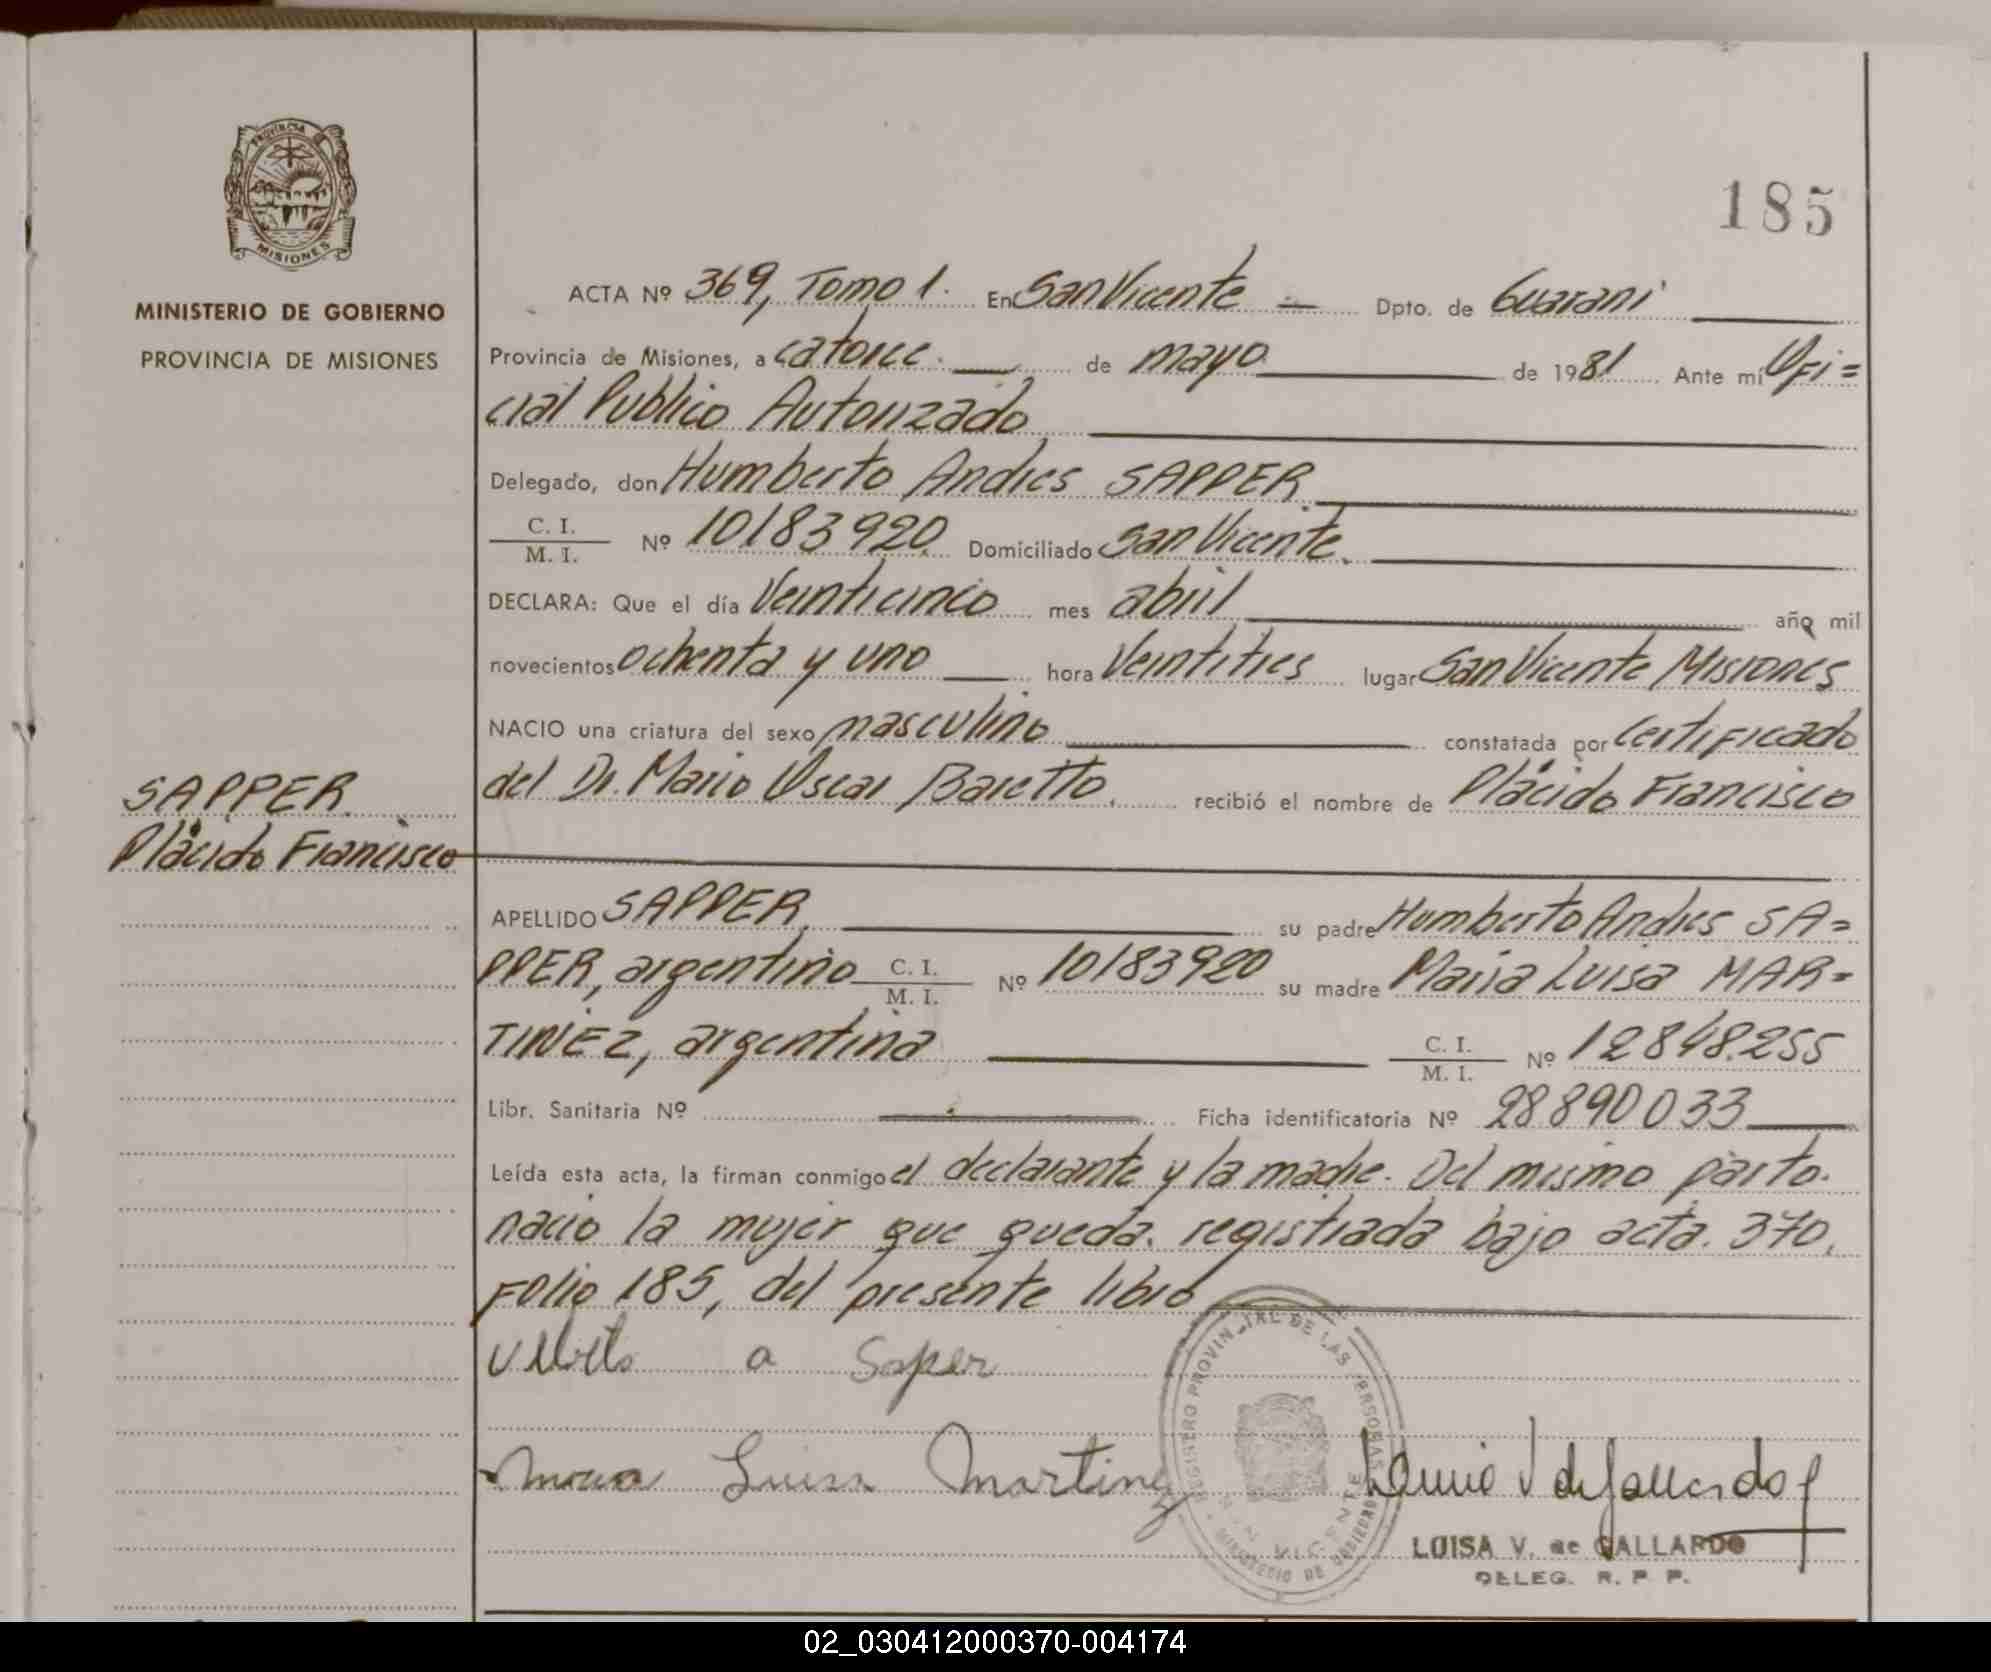 185
PROVINCIA
MISIONES
MINISTERIO DE GOBIERNO
PROVINCIA DE MISIONES
ACTA Nº 369, Tomo 1. En San Vicente = Dpto. de Guarani
Provincia de Misiones, a catorce. de mayo de 1981 Ante mi Ofi=
cial Publico Autorizado
Delegado, don Humberto Andres SAPPER
C. I. / M. I. Nº 10183920 Domiciliado San Vicente.
DECLARA: Que el día Veinticinco mes abril año mil
novecientos ochenta y uno hora Veintitres lugar San Vicente Misiones
NACIO una criatura del sexo masculino constatada por certificado
del Dr. Mario Oscar Baretto. recibió el nombre de Plácido Francisco
SAPPER
Plácido Francisco
APELLIDO SAPPER su padre Humberto Andres SA=
PPER, argentino C. I. / M. I. Nº 10183920 su madre Maria Luisa MAR=
TINEZ, argentina C. I. / M. I. Nº 12848.255
Libr. Sanitaria Nº Ficha identificatoria Nº 28890033
Leída esta acta, la firman conmigo el declarante y la madre. Del mismo parto.
nacio la mujer que queda. registrada bajo acta. 370,
Folio 185, del presente libro
a Saper
Luisa Martinez
REGISTRO PROVINCIAL DE LAS PERSONAS
SAN VICENTE
MINISTERIO DE GOBIERNO
LUISA V. de GALLARDO
DELEG. R. P. P.
02_030412000370-004174